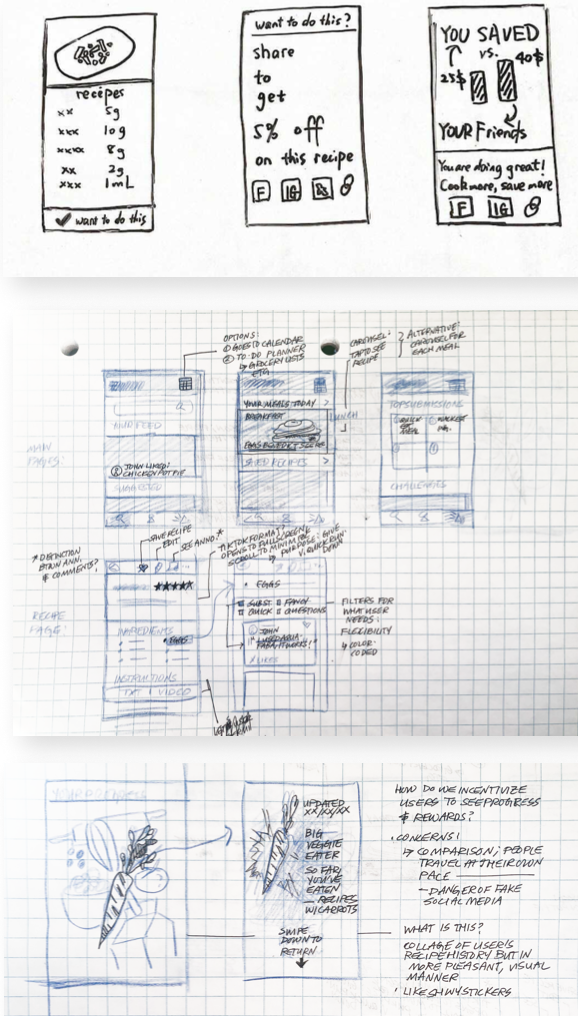 recipes
xx 5g
xxx 10g
xxxx 8g
xx 2g
xxx 1mL
✓ want to do this
want to do this?
share
to
get
5% off
on this recipe
F IG
YOU SAVED
vs.
25$ 40$
YOUR Friends
You are doing great!
Cook more, save more
F IG
OPTIONS:
① GOES TO CALENDAR
② TO-DO PLANNER
↳ GROCERY LISTS
ETC
CAROUSEL:
TAP TO SEE
RECIPE
ALTERNATIVE:
CAROUSEL FOR
EACH MEAL
MAIN
PAGES:
JOHN LIKED:
CHICKEN POT PIE
SUGGESTED
YOUR MEALS TODAY >
BREAKFAST
LUNCH
SAVED RECIPES >
TOP SUBMISSIONS
CHALLENGES
* DISTINCTION
BTWN ANN.
& COMMENTS?
SAVE RECIPE
EDIT
SEE ANNO.*
TIKTOK FORMAT?
OPENS TO FULLSCREEN,
SCROLL TO MINIMIZE
↳ PURPOSE: GIVE
V. QUICK RUN
DOWN
RECIPE
PAGE:
INGREDIENTS
INSTRUCTIONS
TXT | VIDEO
• EGGS
FANCY
QUICK QUESTIONS
JOHN
LIKES
FILTERS FOR
WHAT USER
NEEDS:
FLEXIBILITY
↳ COLOR
CODED
UPDATED
XX/XX/XX
BIG
VEGGIE
EATER
SO FAR,
YOU'VE
EATEN
__ RECIPES
W/ CARROTS
SWIPE
DOWN TO
RETURN
HOW DO WE INCENTIVIZE
USERS TO SEE PROGRESS
& REWARDS?
• CONCERNS:
↳ COMPARISON; PEOPLE
TRAVEL AT THEIR OWN
PACE
— DANGER OF FAKE
SOCIAL MEDIA
WHAT IS THIS?
COLLAGE OF USER'S
RECIPE HISTORY BUT IN
MORE PLEASANT, VISUAL
MANNER